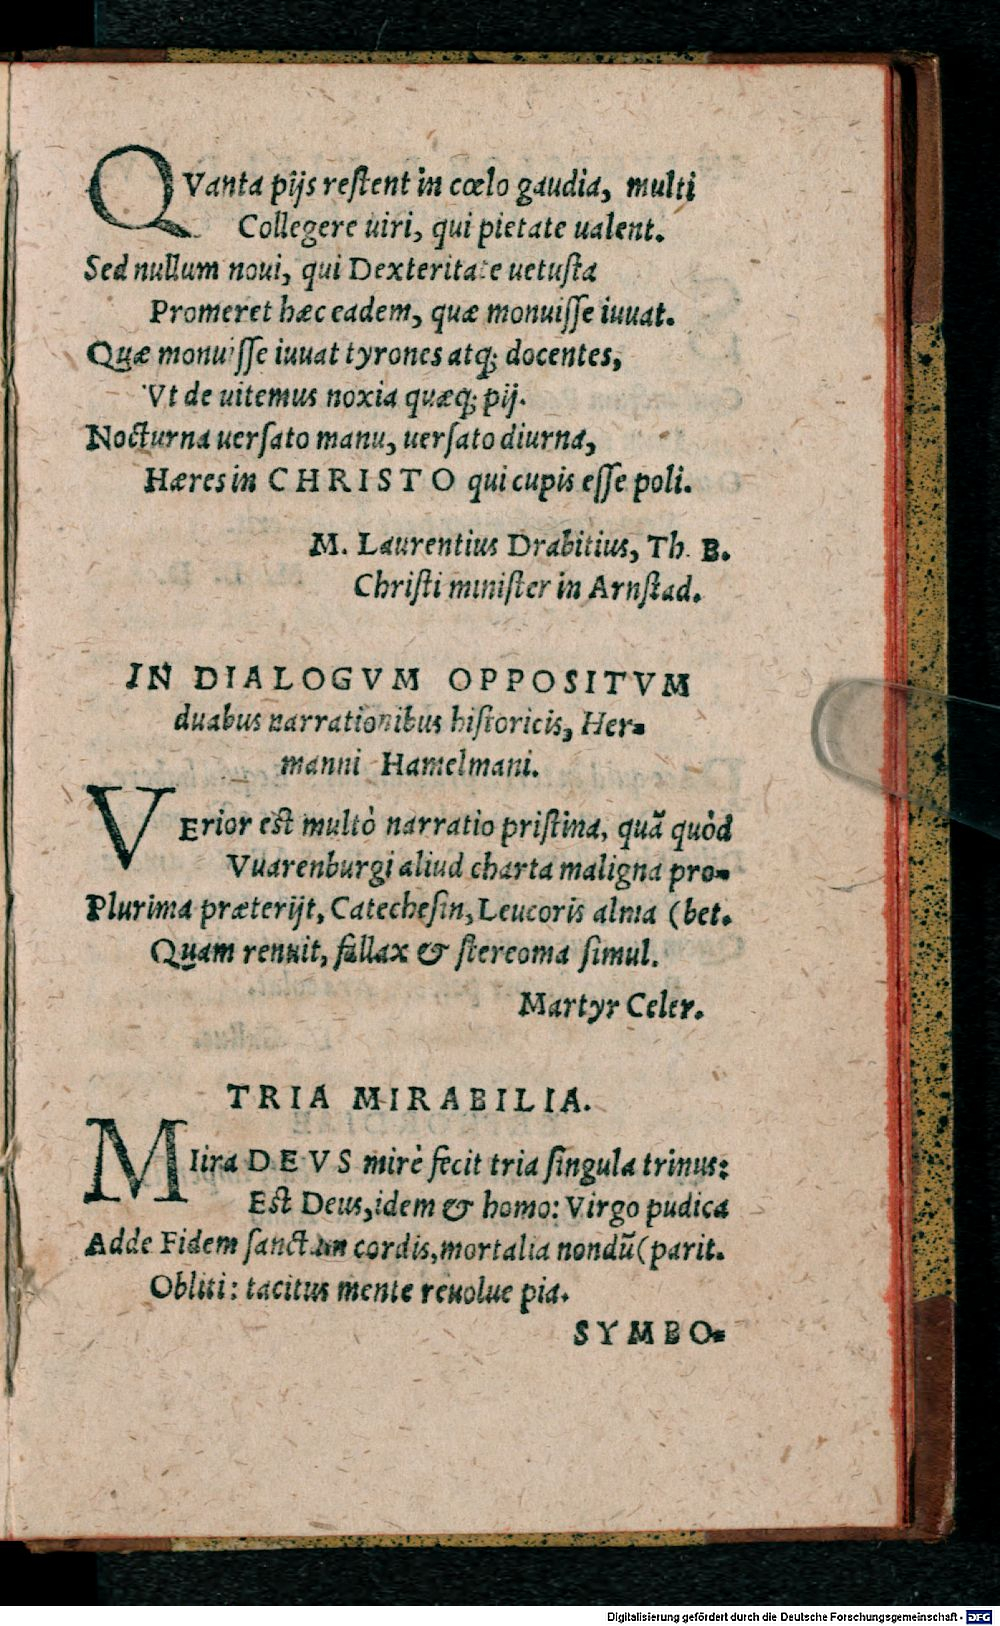 QVanta pijs restent in cœlo gaudia, multi
Collegere uiri, qui pietate ualent.
Sed nullum noui, qui Dexteritate uetusta
Promeret hæc eadem, quæ monuisse iuuat.
Quæ monuisse iuuat tyrones atq; docentes,
Vt de uitemus noxia quæq; pij.
Nocturna uersato manu, uersato diurna,
Hæres in CHRISTO qui cupis esse poli.
M. Laurentius Drabitius, Th. B.
Christi minister in Arnstad.
IN DIALOGVM OPPOSITVM
duabus narrationibus historicis, Her=
manni Hamelmani.
VErior est multò narratio pristina, quã quòd
Vuarenburgi aliud charta maligna pro=
Plurima præterijt, Catechesin, Leucoris alma (bet.
Quam renuit, fallax & stereoma simul.
Martyr Celer.
TRIA MIRABILIA.
MIira DEVS mirè fecit tria singula trinus:
Est Deus, idem & homo: Virgo pudica
Adde Fidem sanctam cordis, mortalia nondũ (parit.
Obliti: tacitus mente reuolue pia.
SYMBO=
Digitalisierung gefördert durch die Deutsche Forschungsgemeinschaft - DFG